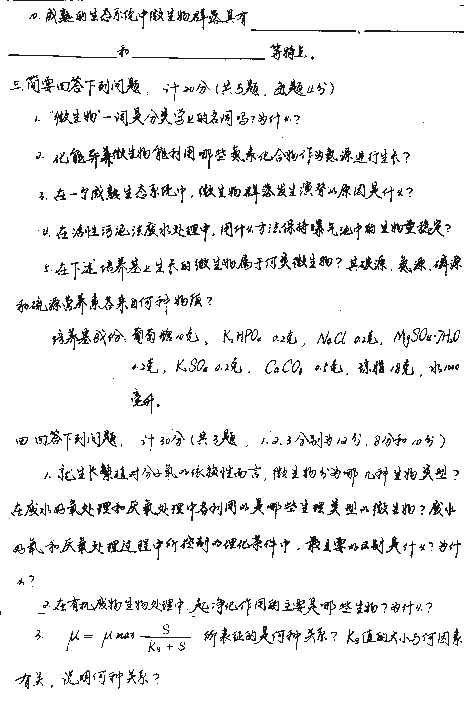 10. 成熟的生态系统中微生物群落具有
和 等特点。
三. 简要回答下列问题, 计20分 (共5题, 每题4分)
1. "微生物"一词是分类学上的名词吗? 为什么?
2. 化能异养微生物能利用哪些氮素化合物作为氮源进行生长?
3. 在一个成熟生态系统中, 微生物群落发生演替的原因是什么?
4. 在活性污泥法废水处理中, 用什么方法保持曝气池中的生物量稳定?
5. 在下述培养基上生长的微生物属于何类微生物? 其碳源、氮源、磷源
和硫源营养素各来自何种物质?
培养基成份: 葡萄糖10克, K2HPO4 0.2克, NaCl 0.2克, MgSO4·7H2O
0.2克, K2SO4 0.2克, CaCO3 0.5克, 琼脂18克, 水1000
毫升。
四 回答下列问题, 计30分 (共3题, 1.2.3分别为12分、8分和10分)
1. 就生长繁殖对分子氧的依赖性而言, 微生物分为哪几种生物类型?
在废水好氧处理和厌氧处理中各利用的是哪些生理类型的微生物? 废水
好氧和厌氧处理过程中所控制的理化条件中, 最主要的区别是什么? 为什
么?
2. 在有机废物生物处理中, 起净化作用的主要是哪些生物? 为什么?
3. μ = μmax S / (Ks + S) 所表征的是何种关系? Ks值的大小与何因素
有关, 说明何种关系?